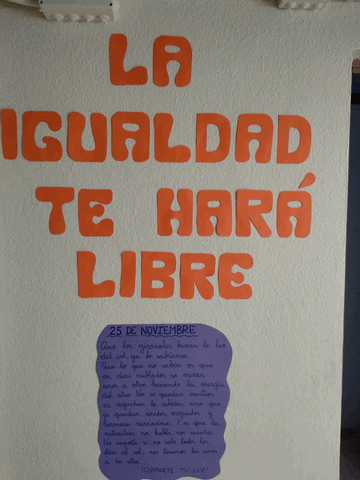 LA
IGUALDAD
TE HARÁ
LIBRE
25 DE NOVIEMBRE
Que los girasoles buscan la luz
del sol, ya lo sabíamos.
Pero lo que no sabía es que
en días nublados se miran
unos a otros buscando la energía
del otro. No se quedan mustios
ni agachan la cabeza, sino que
se quedan unidos erguidos y
hermoso
naturaleza nos habla, nos enseña.
No importa si no sale todos los
días el sol, nos tenemos los unos
a los otros.
¡COMPARTE TU LUZ!